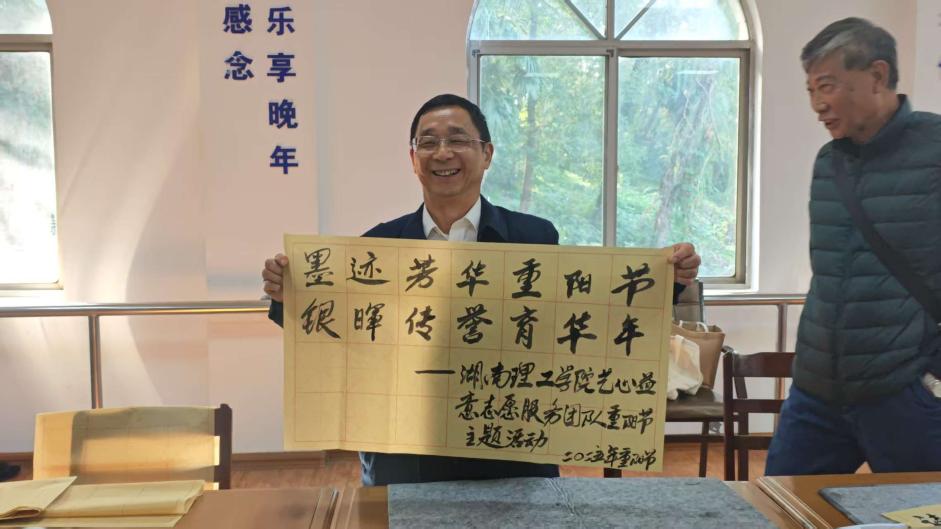 乐享晚年
感念
墨迹芳华重阳节
银晖传誉育华年
——湖南理工学院艺心益
意志愿服务团队重阳节
主题活动
二〇二五年重阳节